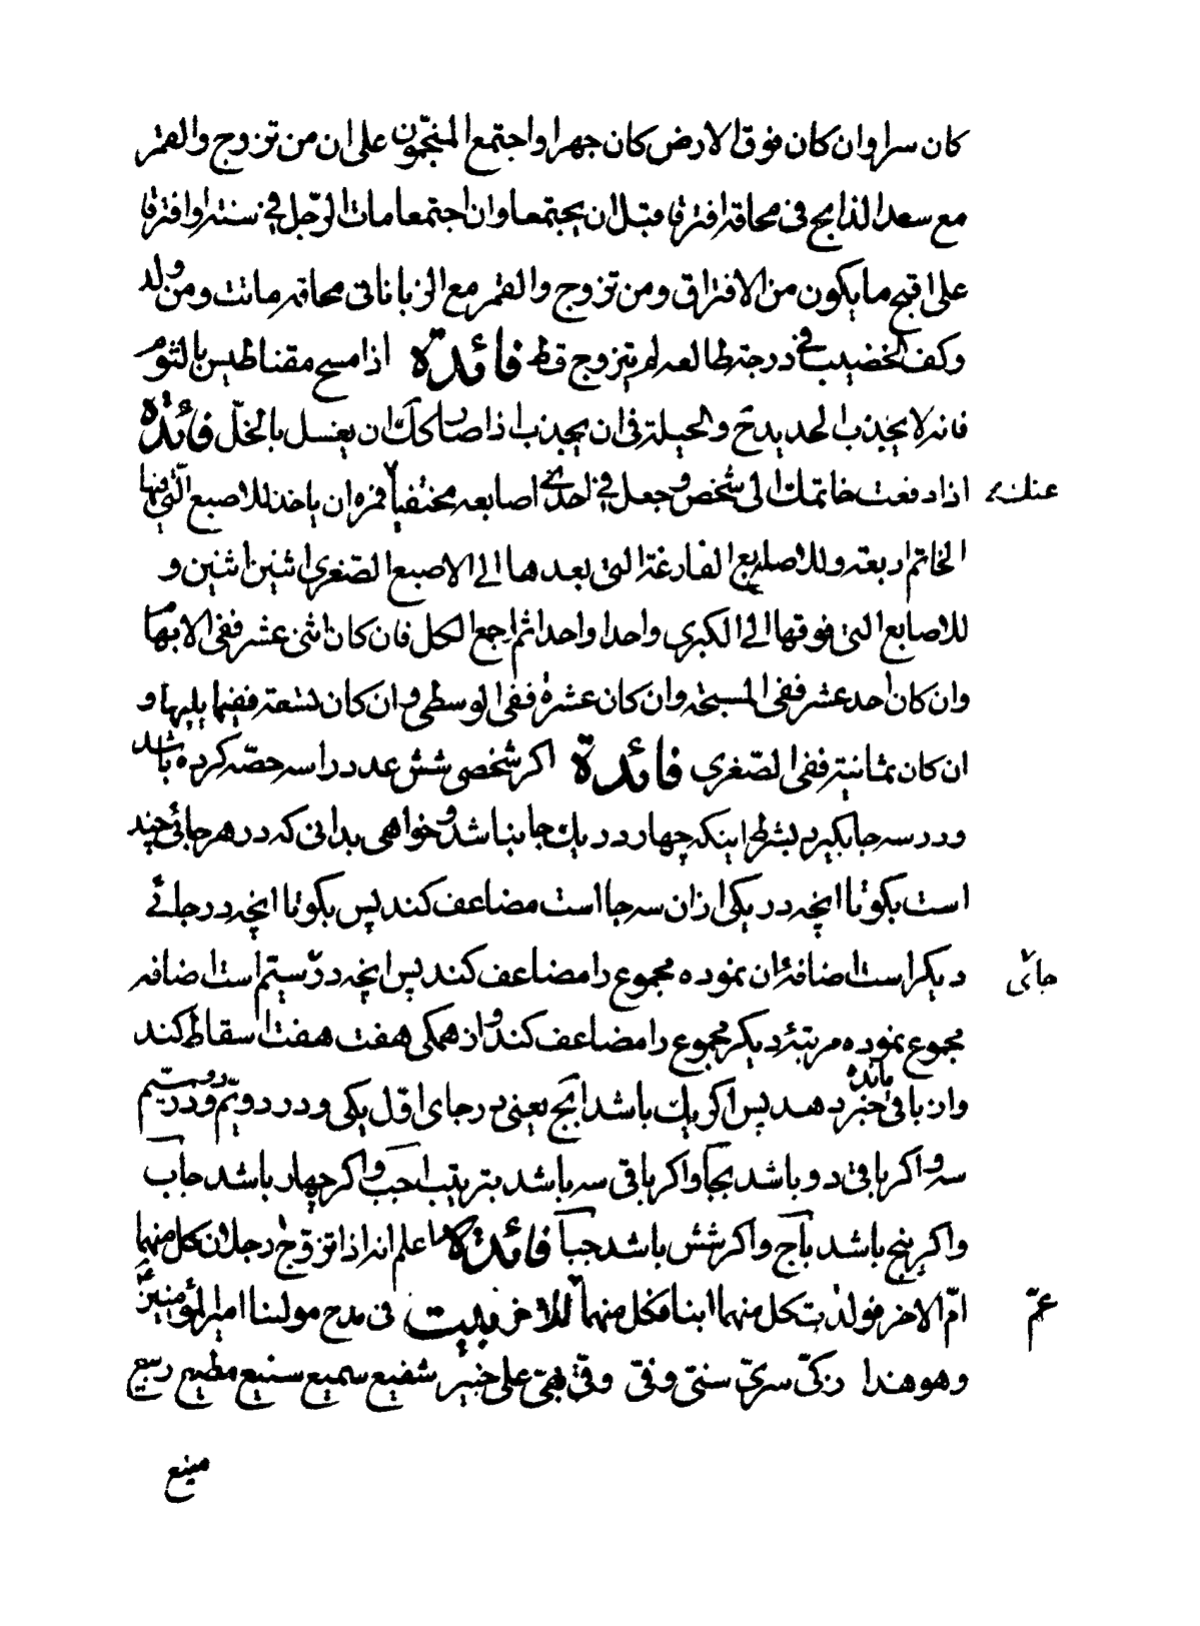 كان سرا وان كان فوق الارض كان جهرا واجتمع المنجّمون على ان من تزوج والقمر
مع سعد الذابح فى محاقه افترقا قبل ان يجتمعا وان اجتمعا مات الرّجل فى سنته او افترقا
على اقبح ما يكون من الافتراق ومن تزوج والقمر مع الزبانا فى محاقه ماتت ومن ولد
وكف الخضيب فى درجة طالعه لم يتزوج قط فائدة اذا مسح مقناطيس بالثوم
فانه لا يجذب الحديد ح والحيلة فى ان يجذب اذا صار كذلك ان يغسل بالخلّ فائدة
اذا دفعت خاتمك الى شخص وجعل فى احدى اصابعه مختفيا فمره ان ياخذ للاصبع الّتى فيها
عنك
الخاتم اربعة وللاصابع الفارغة التى بعدها الى الاصبع الصّغرى اثنين اثنين و
للاصابع التى فوقها الى الكبرى واحدا واحدا ثم اجمع الكل فان كان اثنى عشر ففى الابهام
وان كان احد عشر ففى المسبحه وان كان عشرة ففى الوسطى وان كان تسعة ففيما يليها و
ان كان ثمانية ففى الصّغرى فائدة اكر شخصى شش عدد را سه حصّه كرده باشد
ودر سه جا بكيرد بشرط اينكه چهار در يك جا نباشد وخواهى بدانى كه در هر جائى چند
است بكو تا انچه در يكى از ان سه جا است مضاعف كند پس بكو تا انچه در جائے
ديكر است اضافهٔ ان نموده مجموع را مضاعف كند پس انچه در سيّم است اضافه
جائى
مجموع نموده مرتبهٔ ديكر مجموع را مضاعف كند واز همكى هفت هفت اسقاط كند
واز باقى مانده خبر دهد پس اكر يك باشد ابج يعنى در جاى اوّل يكى ودر دويّم دو ودر سيّم
سه واكر باقى دو باشد بجا واكر باقى سه باشد بترتيب اجب واكر چهار باشد جاب
واكر پنج باشد باج واكر شش باشد جبا فائدة اعلم انه اذا تزوّج رجلان كل منهما
امّ الاخر فولدت كل منهما ابنا فكل منهما للاخر بيت فى مدح مولينا امير المؤمنين
عمّ
وهو هذا زكىّ سرىّ سنىّ وفىّ وفىّ بهىّ على خبير شفيع سميع سنيع مطيع ربيع
منيع